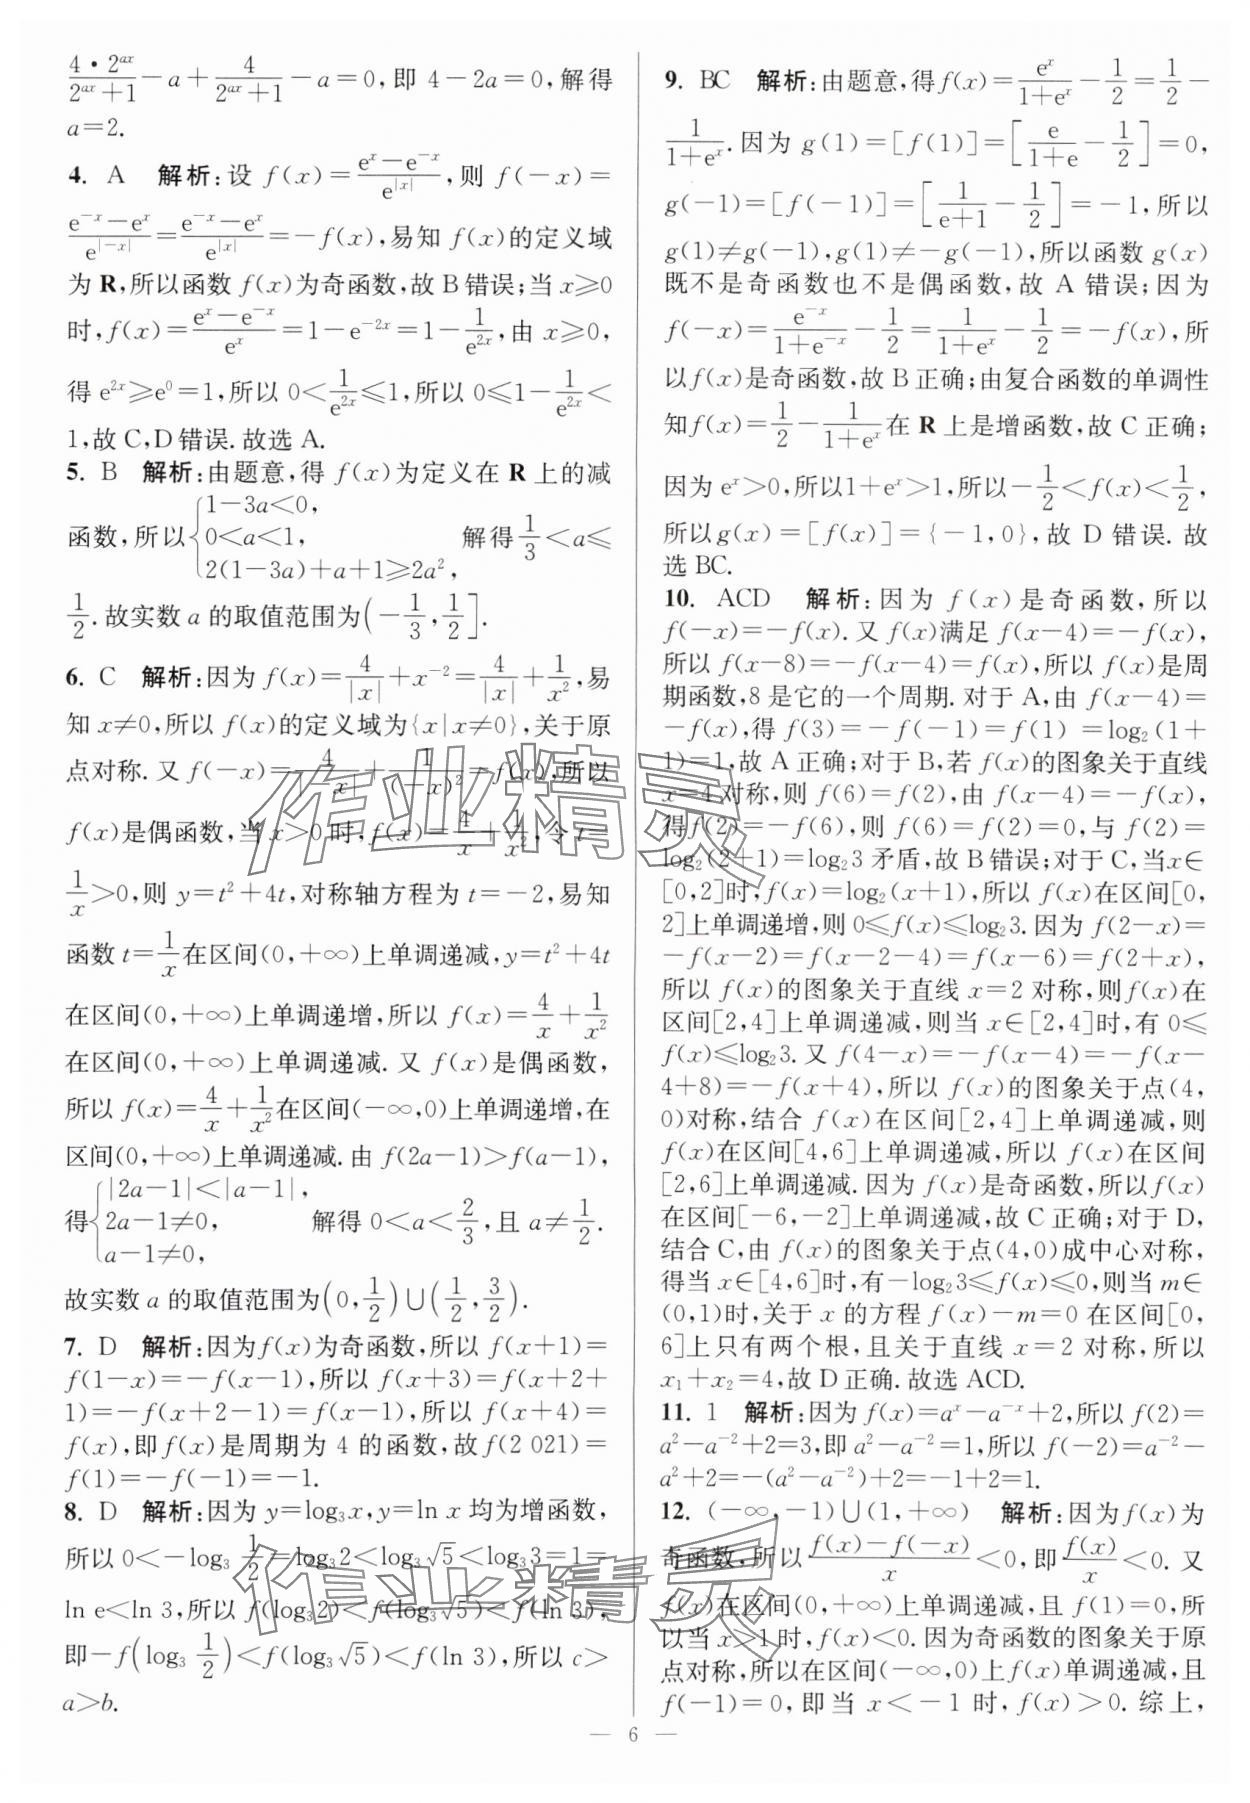 \frac{4·2^{ax}}{2^{ax}+1}-a+\frac{4}{2^{ax}+1}-a=0,即 4-2a=0,解得
a=2.
4. A 解析:设 f(x)=\frac{e^x-e^{-x}}{e^{|x|}},则 f(-x)=
\frac{e^{-x}-e^x}{e^{|-x|}}=\frac{e^{-x}-e^x}{e^{|x|}}=-f(x),易知 f(x)的定义域
为 R,所以函数 f(x)为奇函数,故 B 错误;当 x≥0
时,f(x)=\frac{e^x-e^{-x}}{e^x}=1-e^{-2x}=1-\frac{1}{e^{2x}},由 x≥0,
得 e^{2x}≥e^0=1,所以 0<\frac{1}{e^{2x}}≤1,所以 0≤1-\frac{1}{e^{2x}}<
1,故 C,D 错误.故选 A.
5. B 解析:由题意,得 f(x)为定义在 R 上的减
函数,所以{1-3a<0, 0<a<1, 2(1-3a)+a+1≥2a^2, 解得\frac{1}{3}<a≤
\frac{1}{2}.故实数 a 的取值范围为(-\frac{1}{3},\frac{1}{2}].
6. C 解析:因为 f(x)=\frac{4}{|x|}+x^{-2}=\frac{4}{|x|}+\frac{1}{x^2},易
知 x≠0,所以 f(x)的定义域为{x|x≠0},关于原
点对称.又 f(-x)=\frac{4}{|-x|}+\frac{1}{(-x)^2}=f(x),所以
f(x)是偶函数,当 x>0 时,f(x)=\frac{4}{x}+\frac{1}{x^2},令 t=
\frac{1}{x}>0,则 y=t^2+4t,对称轴方程为 t=-2,易知
函数 t=\frac{1}{x}在区间(0,+∞)上单调递减,y=t^2+4t
在区间(0,+∞)上单调递增,所以 f(x)=\frac{4}{x}+\frac{1}{x^2}
在区间(0,+∞)上单调递减.又 f(x)是偶函数,
所以 f(x)=\frac{4}{x}+\frac{1}{x^2}在区间(-∞,0)上单调递增,在
区间(0,+∞)上单调递减.由 f(2a-1)>f(a-1),
得{|2a-1|<|a-1|, 2a-1≠0, a-1≠0, 解得 0<a<\frac{2}{3},且 a≠\frac{1}{2}.
故实数 a 的取值范围为(0,\frac{1}{2})∪(\frac{1}{2},\frac{3}{2}).
7. D 解析:因为f(x)为奇函数,所以 f(x+1)=
f(1-x)=-f(x-1),所以 f(x+3)=f(x+2+
1)=-f(x+2-1)=f(x-1),所以 f(x+4)=
f(x),即 f(x)是周期为 4 的函数,故 f(2 021)=
f(1)=-f(-1)=-1.
8. D 解析:因为 y=log_3 x,y=ln x 均为增函数,
所以 0<-log_3 \frac{1}{2}=log_3 2<log_3 \sqrt{5}<log_3 3=1=
ln e<ln 3,所以 f(log_3 2)<f(log_3 \sqrt{5})<f(ln 3),
即-f(log_3 \frac{1}{2})<f(log_3 \sqrt{5})<f(ln 3),所以 c>
a>b.
9. BC 解析:由题意,得f(x)=\frac{e^x}{1+e^x}-\frac{1}{2}=\frac{1}{2}-
\frac{1}{1+e^x}.因为 g(1)=[f(1)]=[\frac{e}{1+e}-\frac{1}{2}]=0,
g(-1)=[f(-1)]=[\frac{1}{e+1}-\frac{1}{2}]=-1,所以
g(1)≠g(-1),g(1)≠-g(-1),所以函数 g(x)
既不是奇函数也不是偶函数,故 A 错误;因为
f(-x)=\frac{e^{-x}}{1+e^{-x}}-\frac{1}{2}=\frac{1}{1+e^x}-\frac{1}{2}=-f(x),所
以f(x)是奇函数,故 B 正确;由复合函数的单调性
知f(x)=\frac{1}{2}-\frac{1}{1+e^x}在 R 上是增函数,故 C 正确;
因为 e^x>0,所以1+e^x>1,所以-\frac{1}{2}<f(x)<\frac{1}{2},
所以g(x)=[f(x)]={-1,0},故 D 错误.故
选 BC.
10. ACD 解析:因为 f(x)是奇函数,所以
f(-x)=-f(x).又 f(x)满足 f(x-4)=-f(x),
所以 f(x-8)=-f(x-4)=f(x),所以 f(x)是周
期函数,8 是它的一个周期.对于 A,由 f(x-4)=
-f(x),得 f(3)=-f(-1)=f(1)=log_2(1+
1)=1,故 A 正确;对于 B,若 f(x)的图象关于直线
x=4 对称,则 f(6)=f(2),由 f(x-4)=-f(x),
得f(2)=-f(6),则 f(6)=f(2)=0,与 f(2)=
log_2(2+1)=log_2 3 矛盾,故 B 错误;对于 C,当x∈
[0,2]时,f(x)=log_2(x+1),所以 f(x)在区间[0,
2]上单调递增,则 0≤f(x)≤log_2 3.因为 f(2-x)=
-f(x-2)=f(x-2-4)=f(x-6)=f(2+x),
所以 f(x)的图象关于直线 x=2 对称,则f(x)在
区间[2,4]上单调递减,则当 x∈[2,4]时,有 0≤
f(x)≤log_2 3.又 f(4-x)=-f(x-4)=-f(x-
4+8)=-f(x+4),所以 f(x)的图象关于点(4,
0)对称,结合 f(x)在区间[2,4]上单调递减,则
f(x)在区间[4,6]上单调递减,所以 f(x)在区间
[2,6]上单调递减.因为 f(x)是奇函数,所以f(x)
在区间[-6,-2]上单调递减,故 C 正确;对于 D,
结合 C,由 f(x)的图象关于点(4,0)成中心对称,
得当 x∈[4,6]时,有-log_2 3≤f(x)≤0,则当 m∈
(0,1)时,关于 x 的方程 f(x)-m=0 在区间[0,
6]上只有两个根,且关于直线 x=2 对称,所以
x_1+x_2=4,故 D 正确.故选 ACD.
11. 1 解析:因为 f(x)=a^x-a^{-x}+2,所以 f(2)=
a^2-a^{-2}+2=3,即 a^2-a^{-2}=1,所以 f(-2)=a^{-2}-
a^2+2=-(a^2-a^{-2})+2=-1+2=1.
12. (-∞,-1)∪(1,+∞) 解析:因为f(x)为
奇函数,所以\frac{f(x)-f(-x)}{x}<0,即\frac{f(x)}{x}<0.又
f(x)在区间(0,+∞)上单调递减,且 f(1)=0,所
以当 x>1 时,f(x)<0.因为奇函数的图象关于原
点对称,所以在区间(-∞,0)上f(x)单调递减,且
f(-1)=0,即当 x<-1 时,f(x)>0.综上,
— 6 —
作业精灵
作业精灵